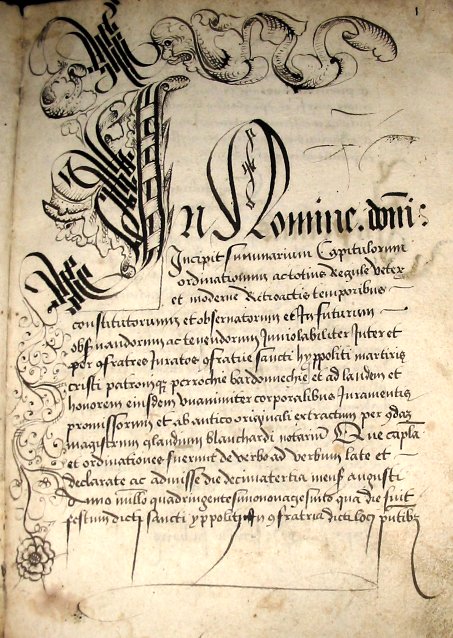 1
In Nomine. dom̄i:
Incipit summarium Capitulorum
ordinationum ac totius Regule veter
et moderne Retroactis temporibus
constitutorum et observatorum et In futurum
observandorum ac tenendorum Inviolabiliter Inter et
per ꝯfratres Iuratos ꝯfratrie sancti hyppoliti martiris
cristi patromqꝫ perrochie bardonnechie et ad laudem et
honorem eiusdem unanimiter corporalibus Iuramentis
promissorum et ab antico originali extractum per
magistrum glaudum blanchardi notarium Que capl̄a
et ordinationes fuerunt de verbo ad verbum late et
declarate ac admisse die decimatertia mens̄ augusti
Anno millo quadringentesimononagesimo qua die fuit
festum dicti sancti yppoliti In ꝯfratria dicti loci pn̄tibꝫ